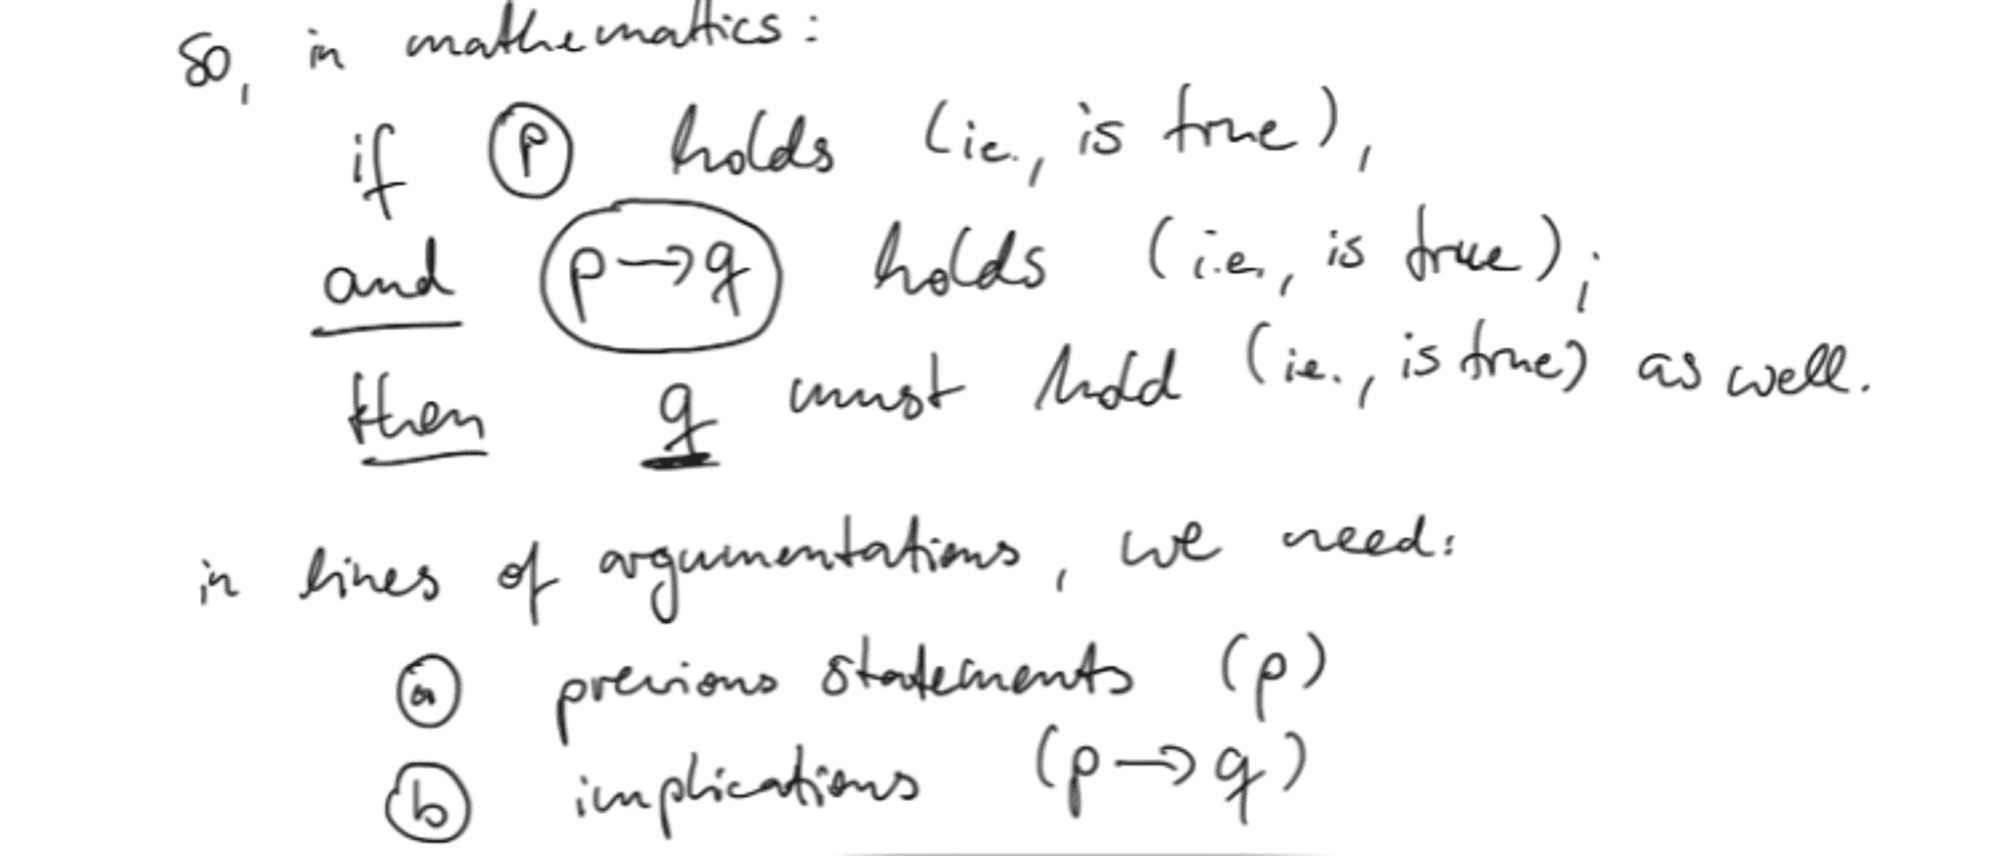 So, in mathematics:
if p holds (i.e., is true),
and p→q holds (i.e., is true),
then q must hold (i.e., is true) as well.
in lines of argumentations, we need:
a previous statements (p)
b implications (p→q)